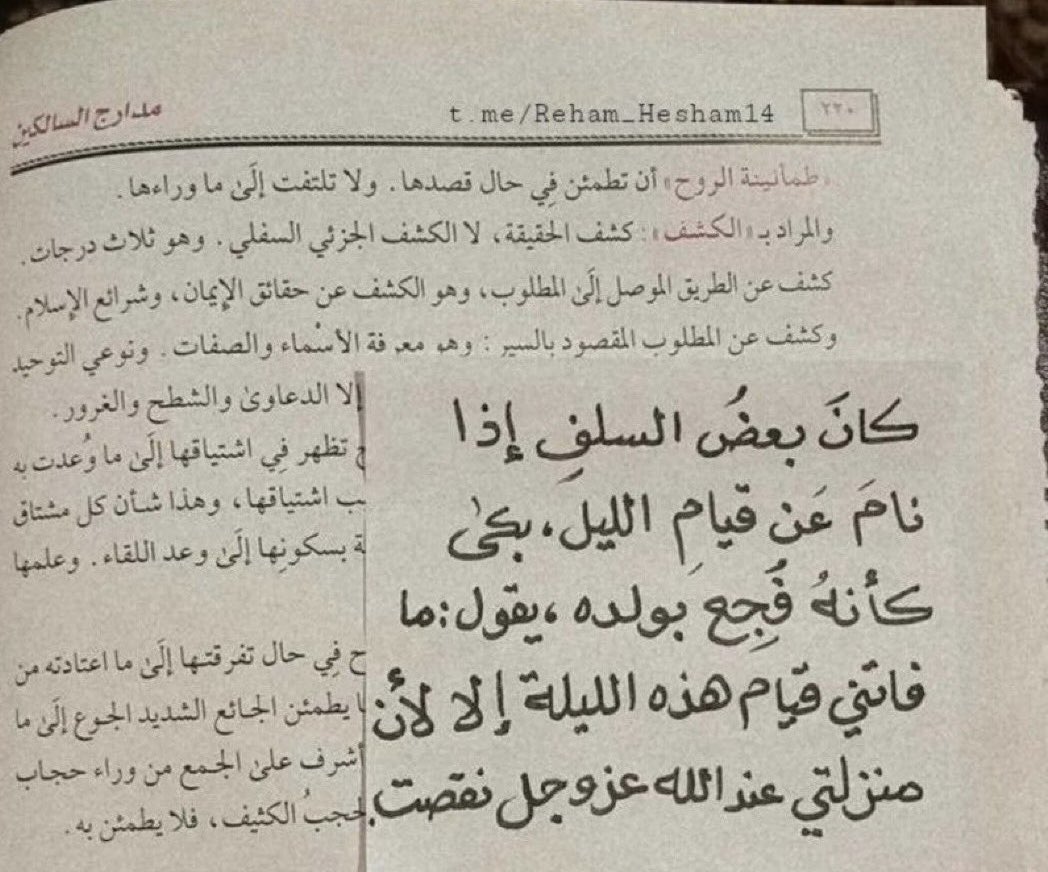 مدارج السالكين
t.me/Reham_Hesham14
٢٢٠
«طمأنينة الروح» أن تطمئن فِي حال قصدها. ولا تلتفت إلَىٰ ما وراءها.
والمراد بـ«الكشف»: كشف الحقيقة، لا الكشف الجزئي السفلي. وهو ثلاث درجات.
كشف عن الطريق الموصل إلَىٰ المطلوب، وهو الكشف عن حقائق الإيمان، وشرائع الإسلام.
وكشف عن المطلوب المقصود بالسير: وهو معرفة الأسْماء والصفات. ونوعي التوحيد
إلا الدعاوىٰ والشطح والغرور.
تظهر فِي اشتياقها إلَىٰ ما وُعدت به
اشتياقها، وهذا شأن كل مشتاق
بسكونِها إلَىٰ وعد اللقاء. وعلمها
فِي حال تفرقتها إلَىٰ ما اعتادته من
يطمئن الجائع الشديد الجوع إلَىٰ ما
أشرف علىٰ الجمع من وراء حجاب
الكثيف، فلا يطمئن به.
كانَ بعضُ السلفِ إذا
نامَ عَن قيامِ الليل، بكىٰ
كأنهُ فُجِع بولده، يقول: ما
فاتني قيام هذه الليلة إلا لأن
منزلتي عند الله عز وجل نقصت